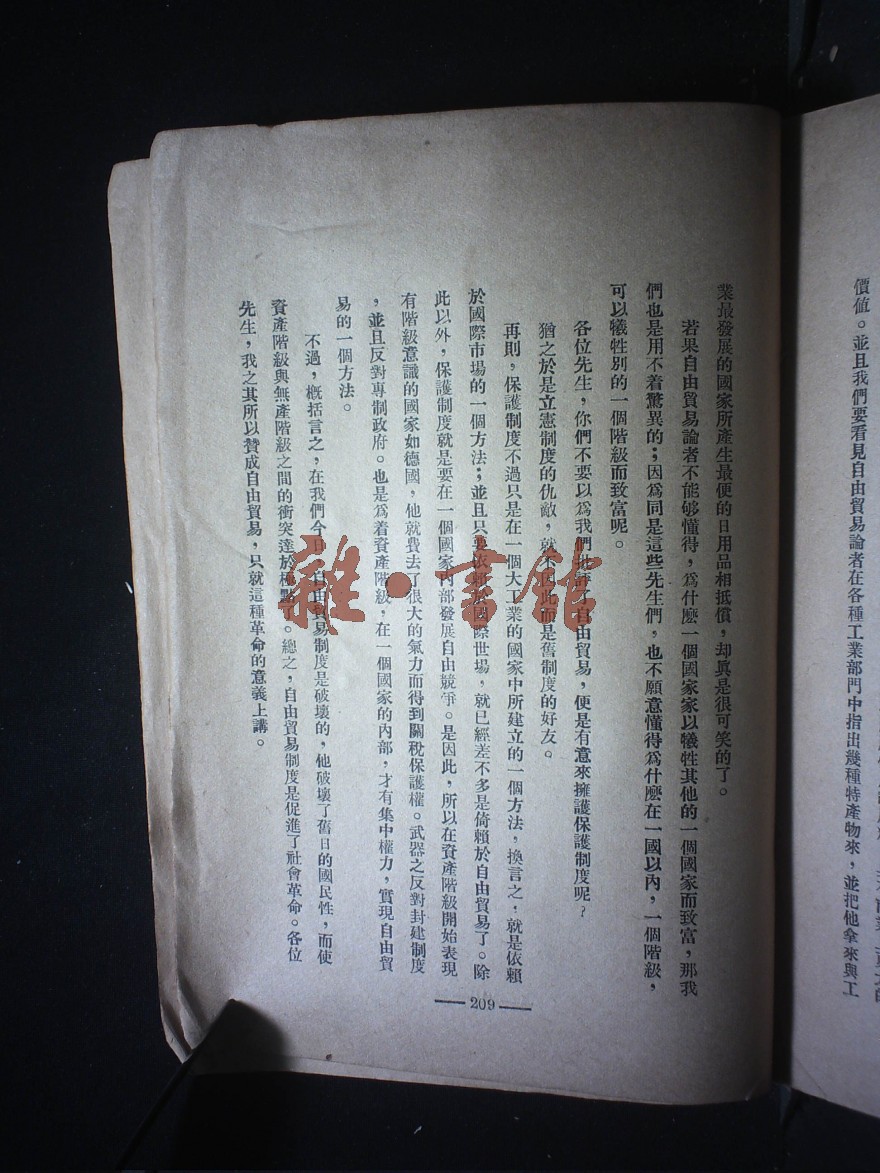 價值。並且我們要看見自由貿易論者在各種工業部門中指出幾種特產物來，並把他拿來與工
業最發展的國家所產生最便的日用品相抵償，却眞是很可笑的了。
若果自由貿易論者不能够懂得，爲什麽一個國家家以犧牲其他的一個國家而致富，那我
們也是用不着驚異的；因爲同是這些先生們，也不願意懂得爲什麽在一國以內，一個階級，
可以犧牲別的一個階級而致富呢。
各位先生，你們不要以爲我們批評了自由貿易，便是有意來擁護保護制度呢？
猶之於是立憲制度的仇敵，就不因此而是舊制度的好友。
再則，保護制度不過只是在一個大工業的國家中所建立的一個方法，換言之，就是依賴
於國際市場的一個方法；並且只要依賴於國際世場，就已經差不多是倚賴於自由貿易了。除
此以外，保護制度就是要在一個國家內部發展自由競爭。是因此，所以在資產階級開始表現
有階級意識的國家如德國，他就費去了很大的氣力而得到關稅保護權。武器之反對封建制度
，並且反對專制政府。也是爲着資產階級，在一個國家的內部，才有集中權力，實現自由貿
易的一個方法。
不過，概括言之，在我們今日，自由貿易制度是破壞的，他破壞了舊日的國民性，而使
資產階級與無產階級之間的衝突達於極點了。總之，自由貿易制度是促進了社會革命。各位
先生，我之其所以贊成自由貿易，只就這種革命的意義上講。
209
雜·書館